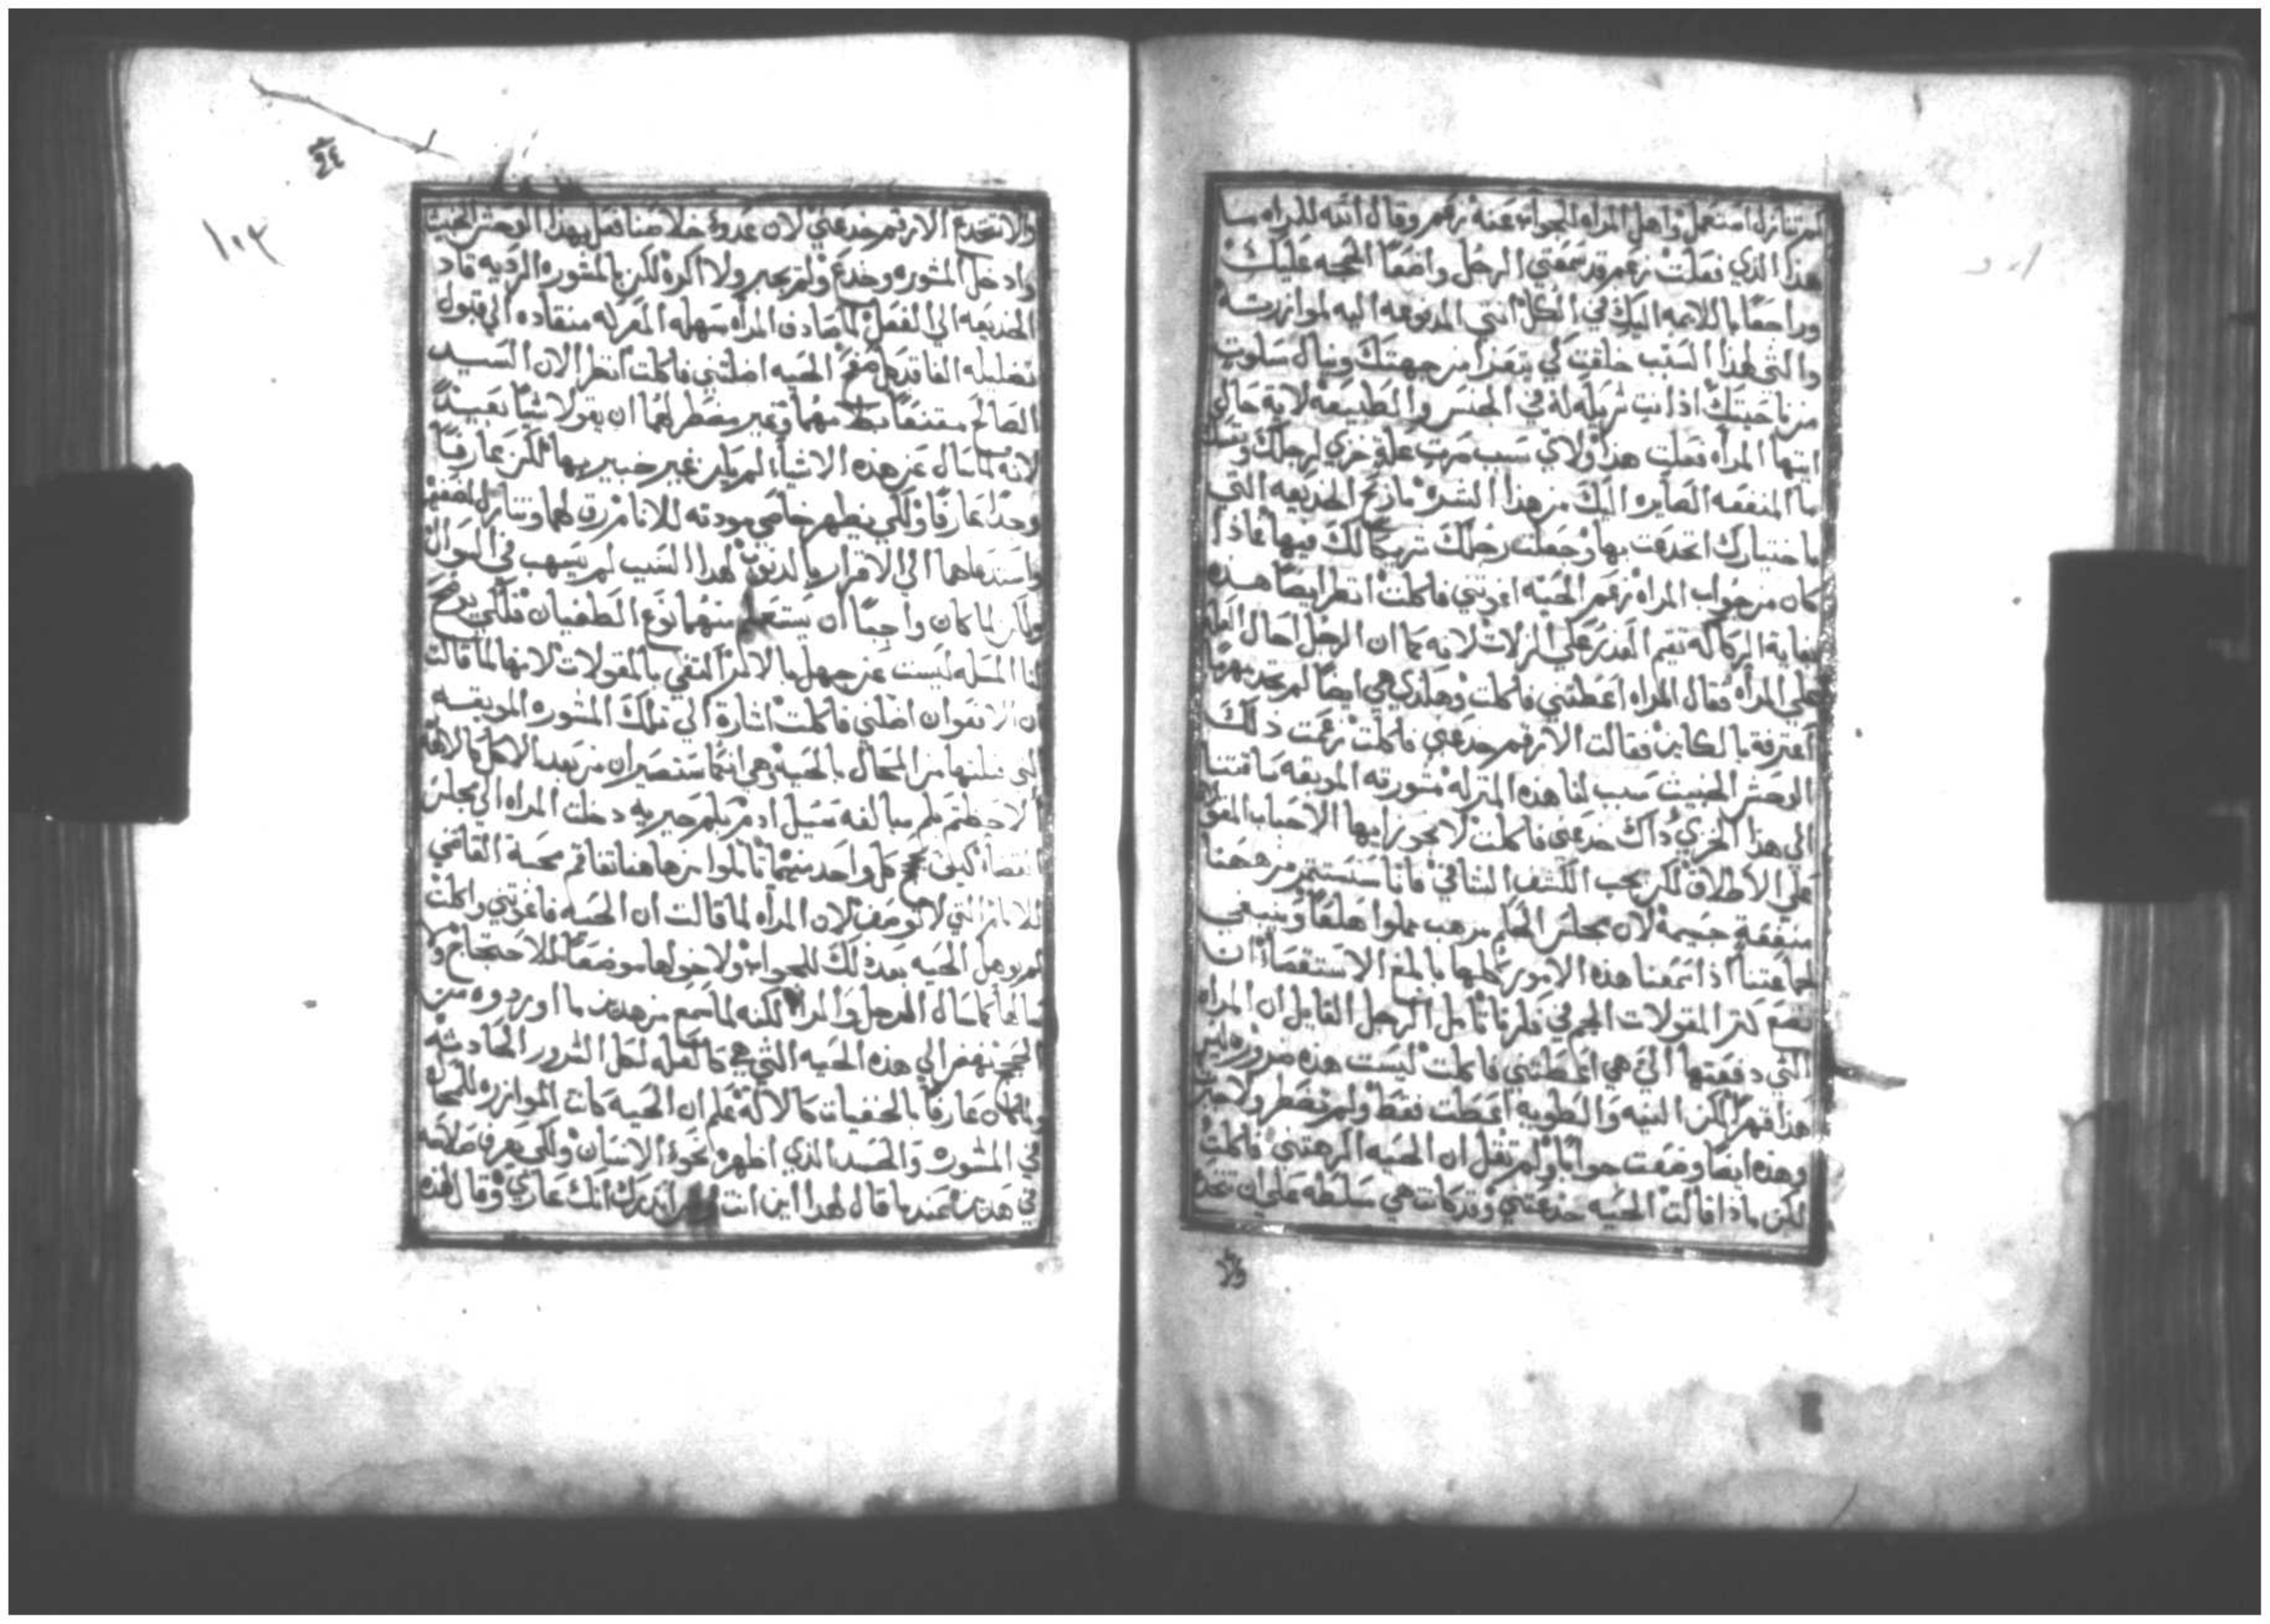 لم تنازل استعمل واهل المراه للجواب عنه زعم وقال الله للمراه ما
هذا الذي فعلت زعم قد سمعتي الرجل واضعًا الحجه عليك
وراجعًا باللايمه اليك في الكل انتي المدفوعه اليه لموازرته
والتي لهذا السبب خلقت كي يتعزا من جهتك وينال سلوت
من ناحيتك اذ انت شريكه له في الجنس والطبيعه لاية حال
ايتها المراه فعلت هذا ولاي سبب صرت علة خزي لرجلك
ما المنفعه الصايره اليك من هذا الشره ما ربح الخديعه التي
باختيارك انخدعت بها وجعلت رجلك شريكًا لك فيها فماذا
كان من جواب المراه زعم الحيه اغوتني فاكلت انظر ايضًا هذه
بغاية الركاكه تقيم العذر على الزلات لانه كما ان الرجل احال العله
علي المراه فقال المراه اعطتني فاكلت وهكذي هي ايضًا لم تجد مهربًا
اعترفة بالكاين فقالت الارقم خدعني فاكلت زعمت ذلك
الوحش الخبيث سبب لنا هذه المنزله مشورته الموبقه ساقتنا
الي هذا الخزي ذاك خدعني فاكلت لا تجوز ايها الاحباب المقولات
علي الاطلاق لكن يجب الكشف الشافي فاننا سنستثمر من ههنا
منفعةٍ جسيمة لان مجلس الحاكم مرهب مملوا هلعًا وينبغي
لجماعتنا اذا سمعنا هذه الامور كلها بابلغ الاستقصاء ان
نضع كنز المقولات الجم في فكرنا تامل الرجل القايل ان المراه
التي دفعتها الي هي اعطتني فاكلت ليست هذه ضروره ليس
هذا قهرًا لكن النيه والطويه اعطت فقط ولم تضطر ولا جبرت
وهذه ايضًا وضعت جوابًا ولم تقل ان الحيه الزمتني فاكلت
لكن ماذا قالت الحيه خدعتني وقد كانت هي سلطه علي ان تنخدع
والا تنخدع الارقم خدعني لان عدوة خلاصنا فعل بهذا الوحش الخبيث
وادخل المشوره وخدع ولم يجبر ولا اكره لكن بالمشوره الرديه قاد
الخديعه الي الفعل لما صادف المراه سهله المعركه منقاده الي قبول
تضليله الفاقد كل صفح الحيه اضلتني فاكلت انظر الان السيد
الصالح مقتنعًا بنطقهما وغير مضطر لهما ان يقولا شيًا بعيدًا
لانه لما سال عن هذه الاشيا لم يكن غير خبير بها لكن عارفًا
وجدًا عارفًا ولكي يظهر خاصي مودته للانام رق لهما وتنازل لضعفهما
واستدعاهما الي الاقرار بالذنوب لهذا السبب لم يسهب في السوال
ولكن لما كان واجبًا ان يستعلم منهما نوع الطغيان فلكي يوضح
لنا المسله ليست عن جهل بالامر اكتفي بالمقولات لانها لما قالت
ان الافعوان اضلني فاكلت اشارة الي تلك المشوره الموبقه
التي قبلتها من المحال بالحيه وهي انكما ستصيران من بعد الاكل كالالهه
الاحظتم بكم مبالغه سيل ادم بكم حيريه دخلت المراه الي مجلس
القضا كيف حج كل واحد منهما تاملوا من هاهنا تفاقم محبة القاضي
للانام التي لا توصف لان المراه لما قالت ان الحيه فاغوتني واكلت
لم يوهل الحيه بعد ذلك للجواب ولا خولها موضعًا للاحتجاج ولا
سالها كما سال الرجل والمراه لكنه لما سمع من هذين ما اوردوه من
الحجج نهض الي هذه الحيه التي هي كالعله لكل الشرور الحادثه
وبما انه كان عارفًا بالخفيات كالاله علم ان الحيه كانت الموازره للمحال
في المشوره والحسد الذي اظهره نحو الانسان ولكي يعرف صلاحه
في هذين عندما قال لهذا اين انت من اخبرك انك عاري وقال لهذه